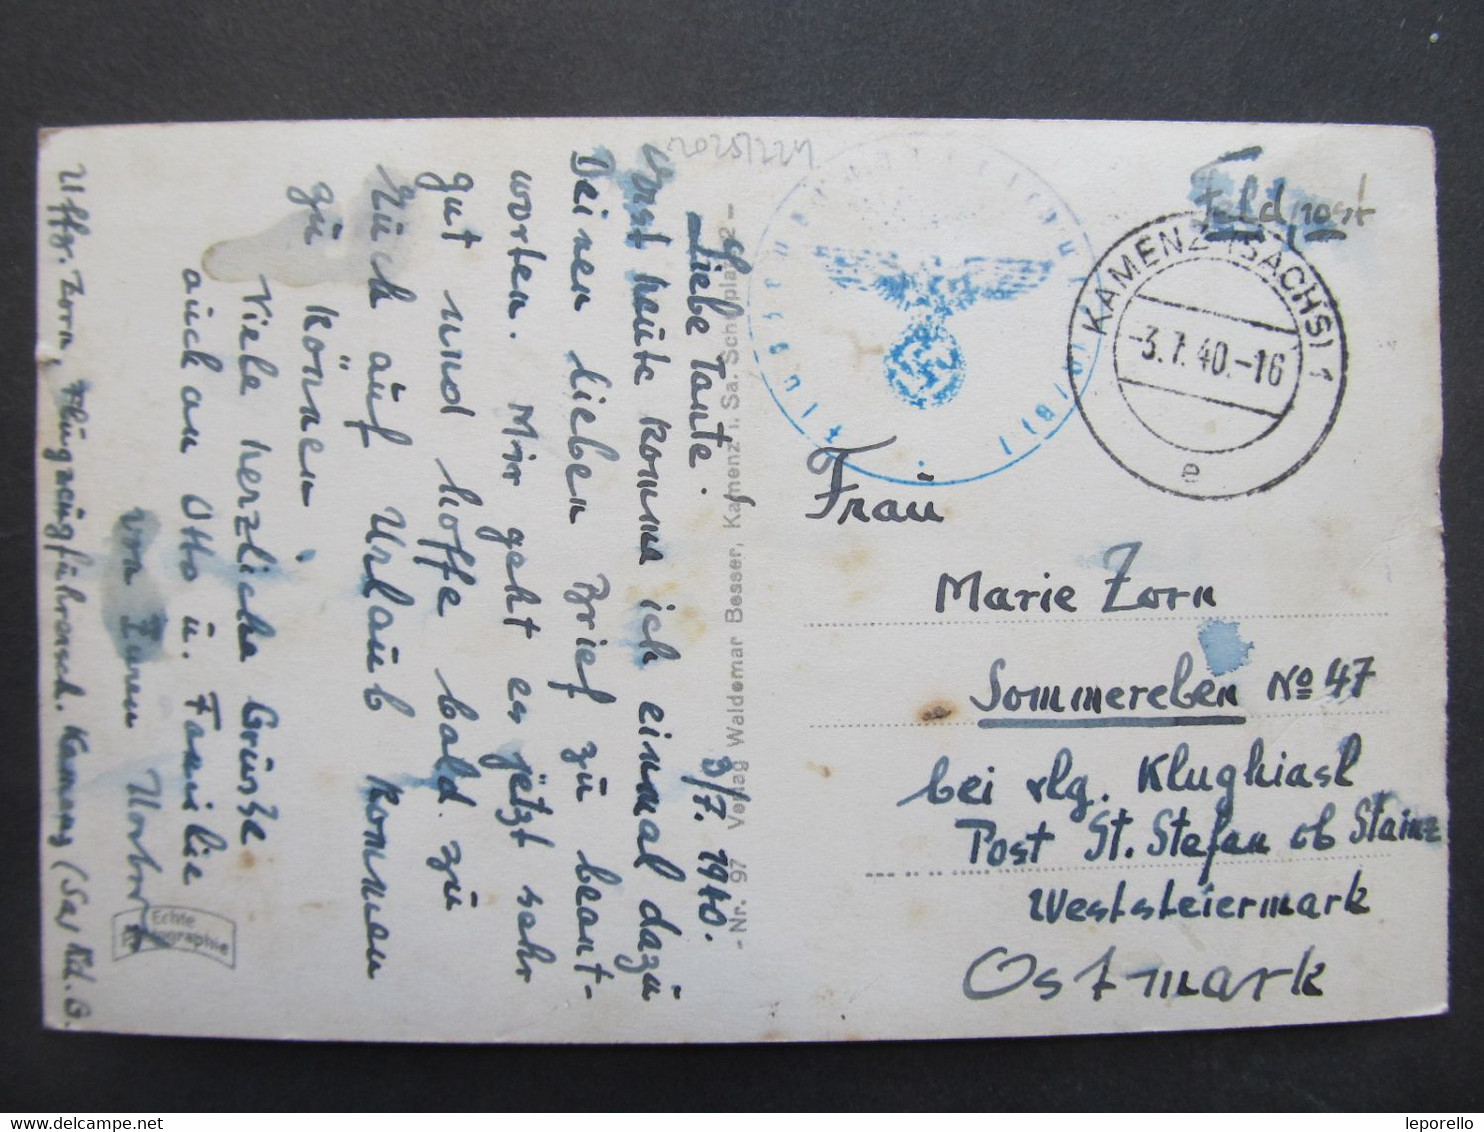 Feldpost
KAMENZ (SACHS) 1
-3.7.40.-16
e
Frau
Marie Zorn
Sommereben No 47
bei vlg. Klughiasl
Post St. Stefan ob Stainz
Weststeiermark
Ostmark
- Nr. 97 Verlag Waldemar Besser, Kamenz i. Sa. Schulplatz 2 -
3/7. 1940.
Liebe Tante.
Erst heute komme ich einmal dazu
Deinen lieben Brief zu beant-
worten. Mir geht es jetzt sehr
gut und hoffe bald zu
Euch auf Urlaub kommen
zu können
Viele herzliche Grüße
auch an Otto u. Familie
von Eurem Norbert
Echte Photographie
Uffz. Zorn, Flugzeugführersch. Kamenz (Sa)
leporello